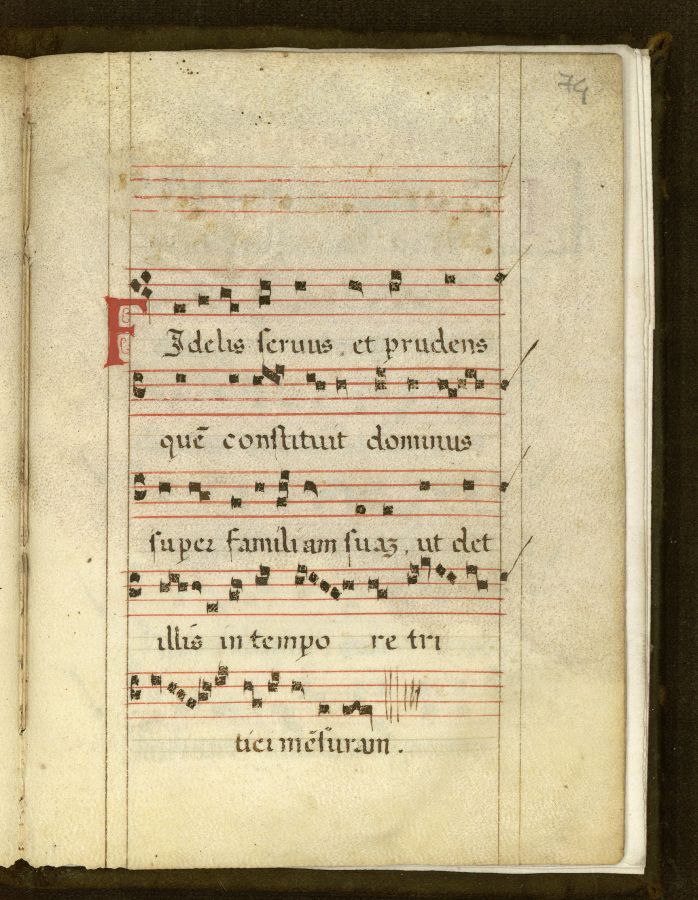 74
FIdelis seruus. et prudens
quē constituit dominus
super familiam suaꝫ. ut det
illis in tempo re tri
tici mēsuram.